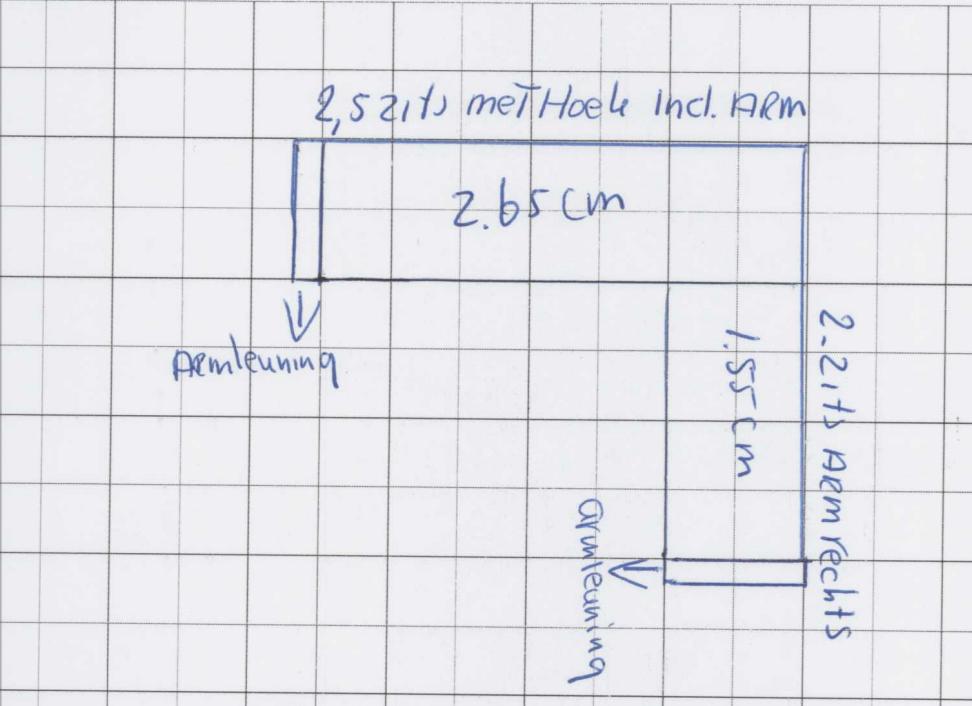 2,5 zits met Hoek Incl. ARM
2.65 cm
Armleuning
1.55 cm
2-zits ARM rechts
armleuning